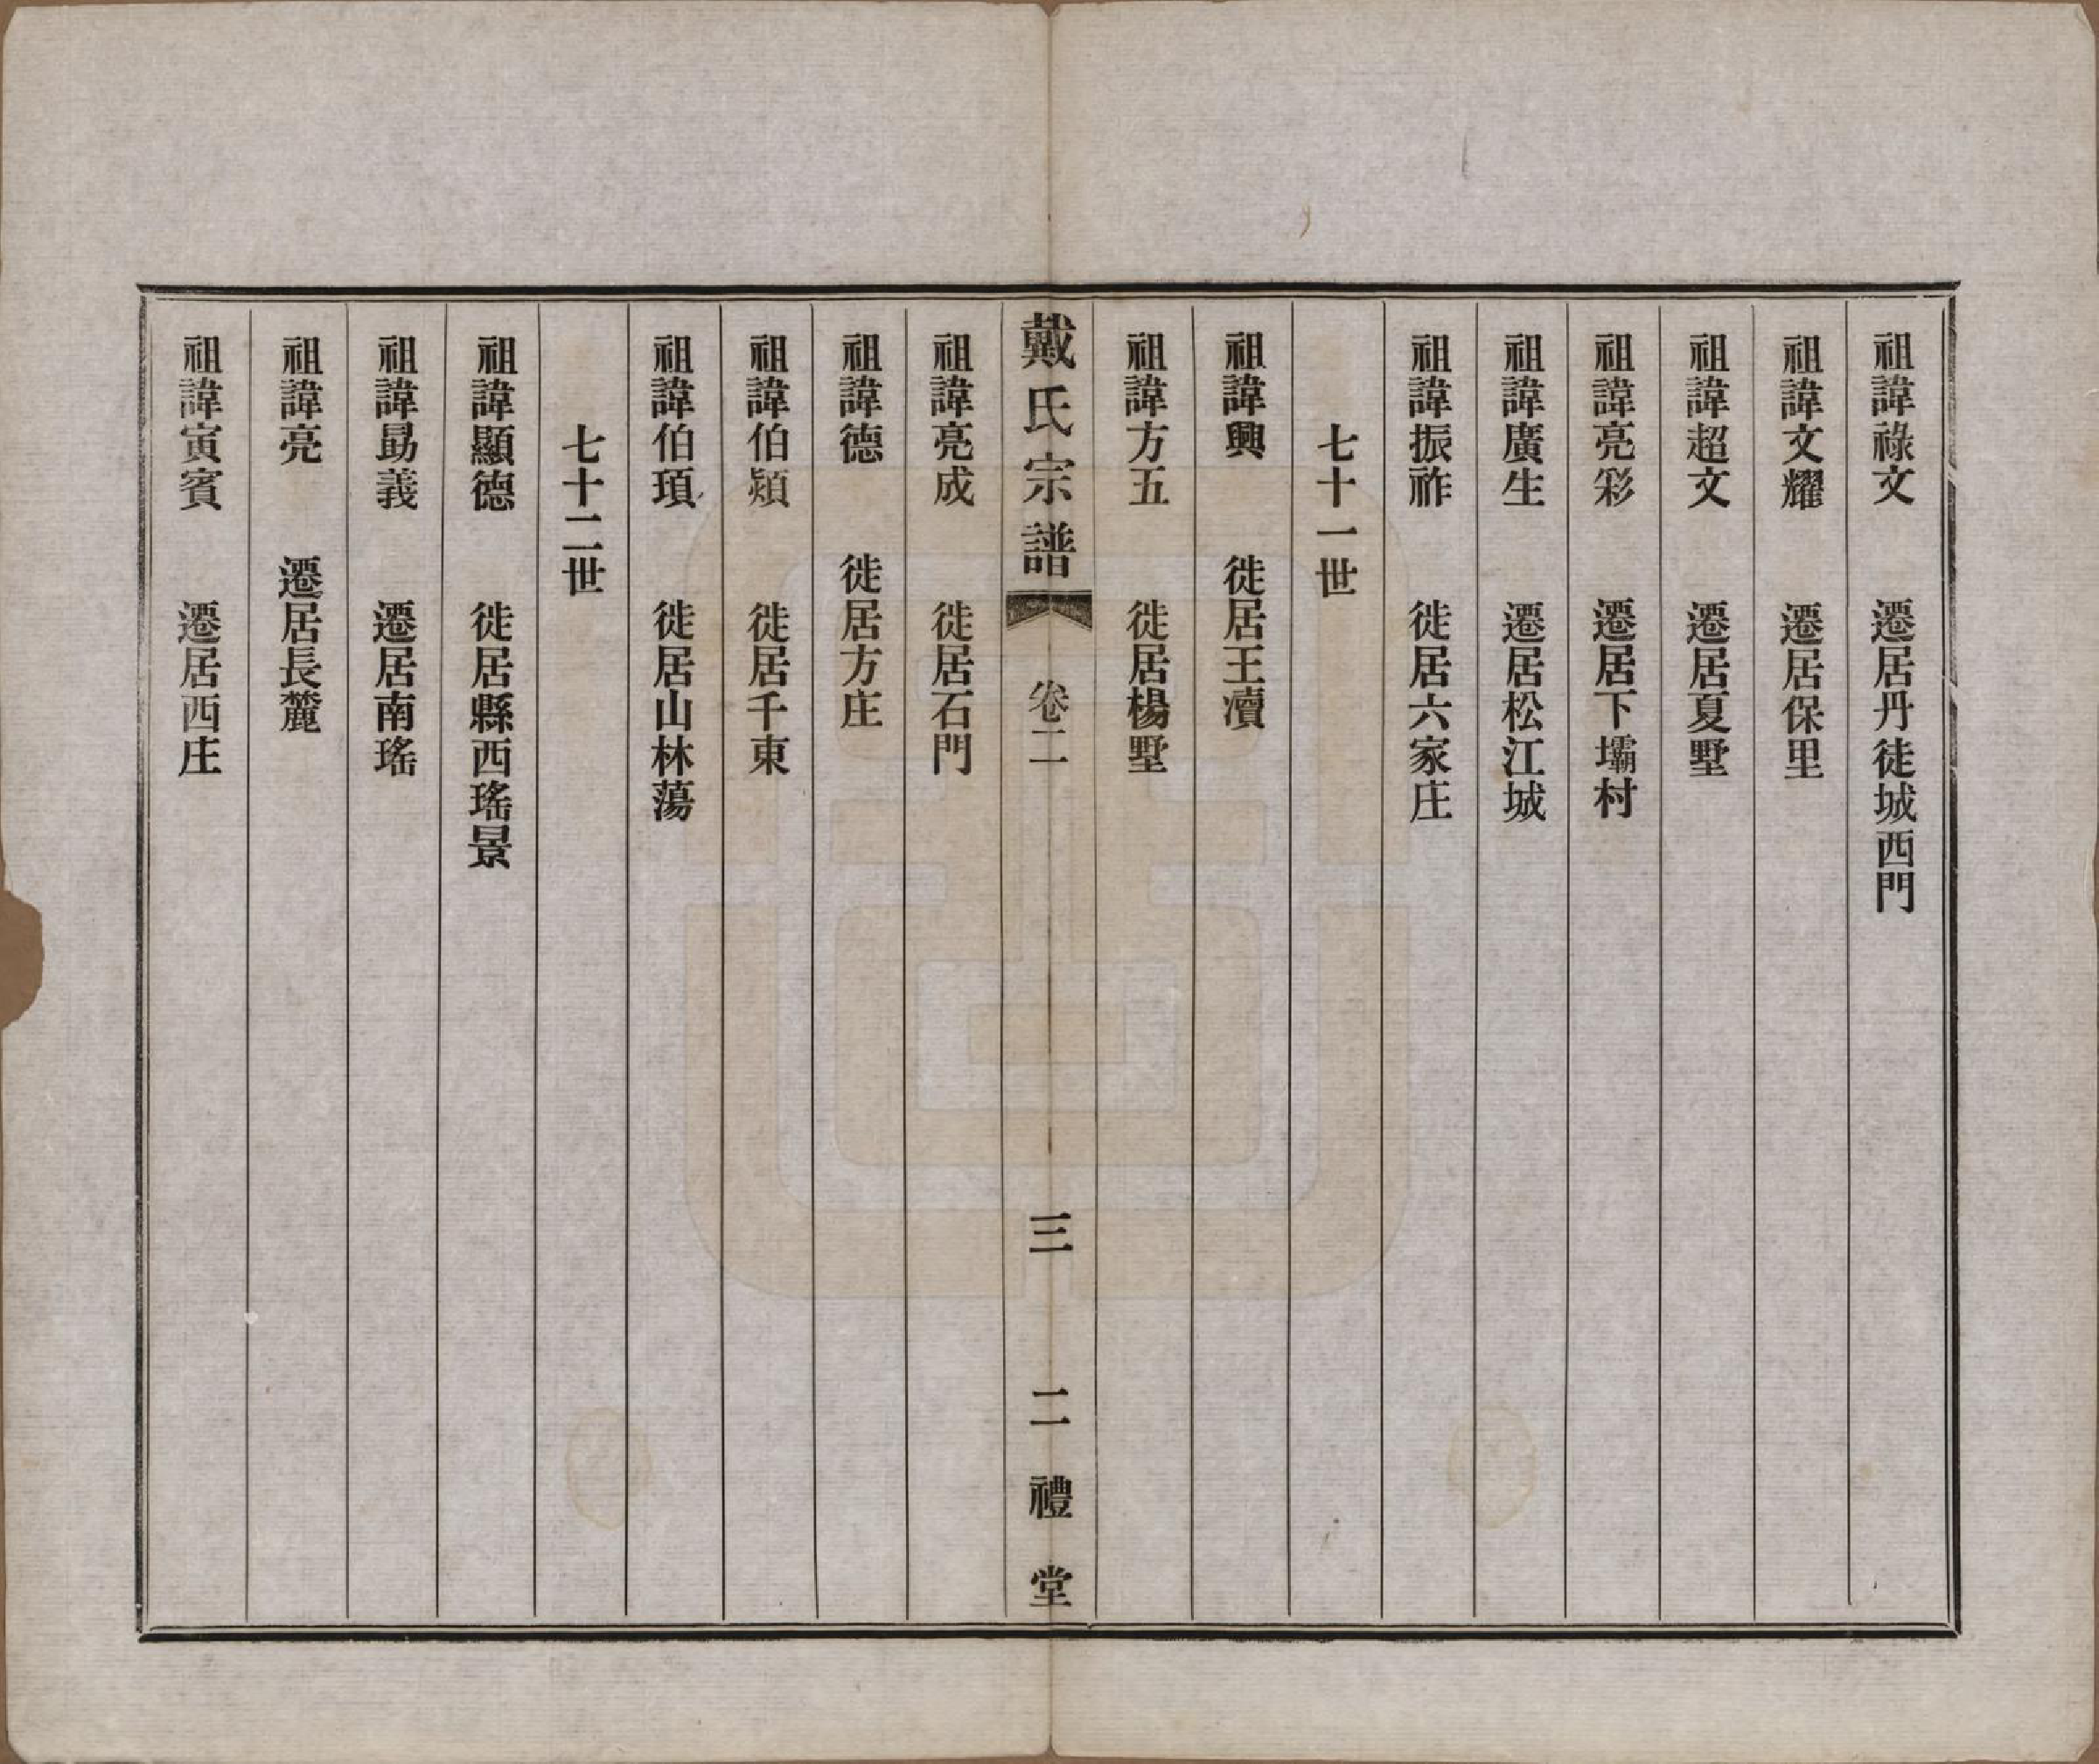 祖諱祿文 遷居丹徒城西門
祖諱文耀 遷居保里
祖諱超文 遷居夏墅
祖諱亮彩 遷居下壩村
祖諱廣生 遷居松江城
祖諱振祚 徙居六家庄
七十一世
祖諱興 徙居王瀆
祖諱方五 徙居楊墅
戴氏宗譜 卷二 三 二禮堂
祖諱亮成 徙居石門
祖諱德 徙居方庄
祖諱伯頴 徙居千東
祖諱伯項 徙居山林蕩
七十二世
祖諱顯德 徙居縣西瑤景
祖諱勗義 遷居南瑤
祖諱亮 遷居長麓
祖諱寅賓 遷居西庄